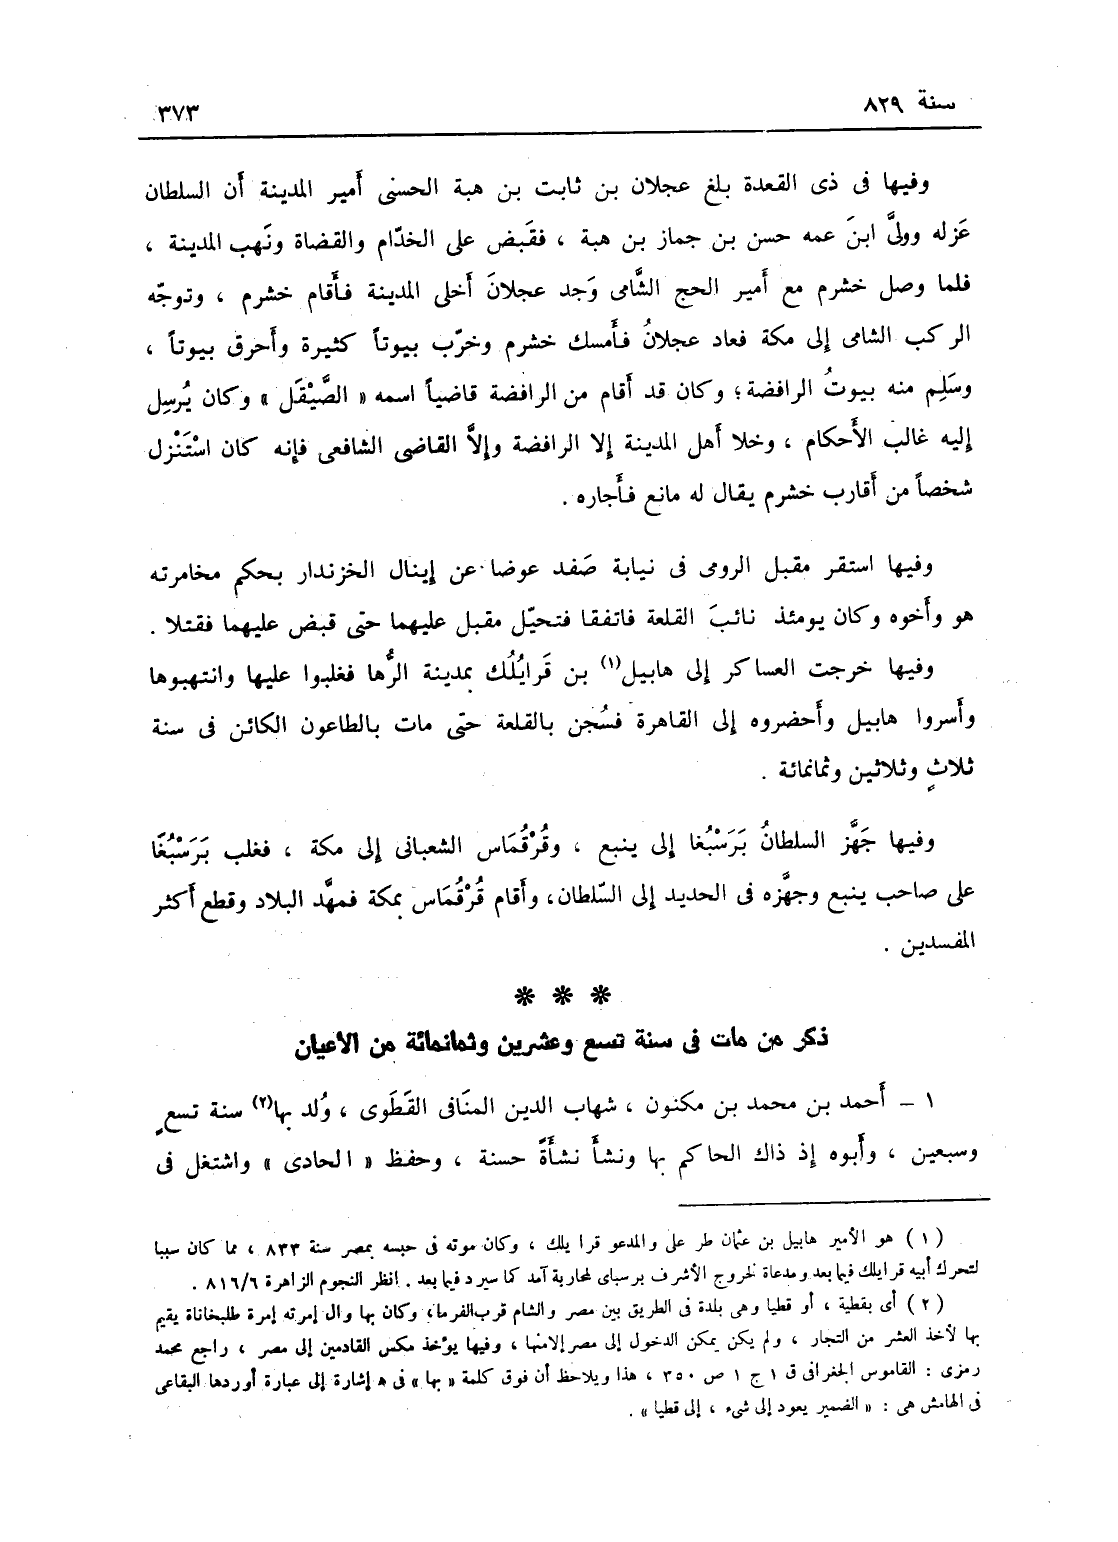 سنة ٨٢٩
٣٧٣
وفيها فى ذى القعدة بلغ عجلان بن ثابت بن هبة الحسنى أَمير المدينة أَن السلطان
عَزله وولَّى ابنَ عمه حسن بن جماز بن هبة ، فقَبض على الخدّام والقضاة ونَهب المدينة ،
فلما وصل خشرم مع أَمير الحج الشَّامى وَجد عجلانَ أَخلى المدينة فأَقام خشرم ، وتوجّه
الركب الشامى إلى مكة فعاد عجلانُ فأَمسك خشرم وخرّب بيوتاً كثيرة وأَحرق بيوتاً ،
وسَلِم منه بيوتُ الرافضة؛ وكان قد أَقام من الرافضة قاضياً اسمه « الصَّيْقَل » وكان يُرسِل
إليه غالب الأَحكام ، وخلا أَهل المدينة إلا الرافضة وإلاَّ القاضى الشافعى فإنه كان اسْتَنْزل
شخصاً من أَقارب خشرم يقال له مانع فأَجاره .
وفيها استقر مقبل الرومى فى نيابة صَفد عوضا عن إينال الخزندار بحكم مخامرته
هو وأَخوه وكان يومئذ نائبَ القلعة فاتفقا فتحيّل مقبل عليهما حتى قبض عليهما فقتلا .
وفيها خرجت العساكر إلى هابيل(١) بن قَرايُلُك بمدينة الرُّها فغلبوا عليها وانتهبوها
وأَسروا هابيل وأَحضروه إلى القاهرة فسُجن بالقلعة حتى مات بالطاعون الكائن فى سنة
ثلاثٍ وثلاثين وثمانمائة .
وفيها جَهَّز السلطانُ بَرَسْبُغا إلى ينبع ، وقُرْقُمَاس الشعبانى إلى مكة ، فغلب بَرَسْبُغَا
على صاحب ينبع وجهَّزه فى الحديد إلى السّلطان، وأَقام قُرْقُمَاس بمكة فمهَّد البلاد وقطع أَكثر
المفسدين .
* * *
ذكر من مات فى سنة تسع وعشرين وثمانمائة من الأعيان
١ – أَحمد بن محمد بن مكنون ، شهاب الدين المنَافى القَطَوى ، وُلد بها(٢) سنة تسع
وسبعين ، وأَبوه إذ ذاك الحاكم بها ونشأَ نشأَةً حسنة ، وحفظ « الحادى » واشتغل فى
(١) هو الأمير هابيل بن عثمان طر على والمدعو قرا يلك ، وكان موته فى حبسه بمصر سنة ٨٣٣ ، مما كان سببا
لتحرك أبيه قرايلك فيما بعد ومدعاة لخروج الأشرف برسباى لمحاربة آمد كما سيرد فيما بعد . انظر النجوم الزاهرة ٨١٦/٦ .
(٢) أى بقطية ، أو قطيا وهى بلدة فى الطريق بين مصر والشام قرب الفرما، وكان بها وال إمرته إمرة طلبخاناة يقيم
بها لأخذ العشر من التجار ، ولم يكن يمكن الدخول إلى مصر إلا منها ، وفيها يؤخذ مكس القادمين إلى مصر ، راجع محمد
رمزى : القاموس الجغرافى ق ١ ج ١ ص ٣٥٠ ، هذا ويلاحظ أن فوق كلمة « بها » فى ه إشارة إلى عبارة أوردها البقاعى
فى الهامش هى : « الضمير يعود إلى شىء ، إلى قطيا » .